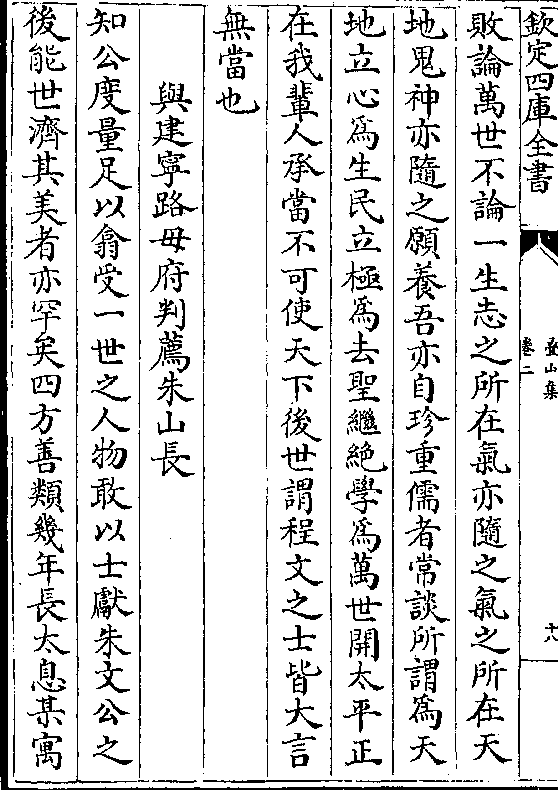 欽定四庫全書
疊山集
卷二
十八
敗論萬世不論一生志之所在氣亦隨之氣之所在天
地鬼神亦隨之願養吾亦自珍重儒者常談所謂為天
地立心為生民立極為去聖繼絶學為萬世開太平正
在我輩人承當不可使天下後世謂程文之士皆大言
無當也
與建寧路毋府判薦朱山長
知公度量足以翕受一世之人物敢以士獻朱文公之
後能世濟其美者亦罕矣四方善類幾年長太息某寓